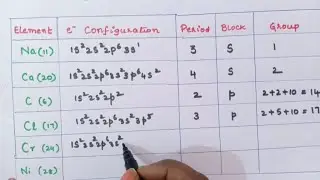 Element e⁻ Configuration Period Block Group
Na(11) 1s²2s²2p⁶3s¹ 3 S 1
Ca(20) 1s²2s²2p⁶3s²3p⁶4s² 4 S 2
C (6) 1s²2s²2p² 2 p 2+2+10=14
Cl(17) 1s²2s²2p⁶3s²3p⁵ 3 p 2+5+10=17
Cr(24) 1s²2s²2p⁶3s²
Ni (28)